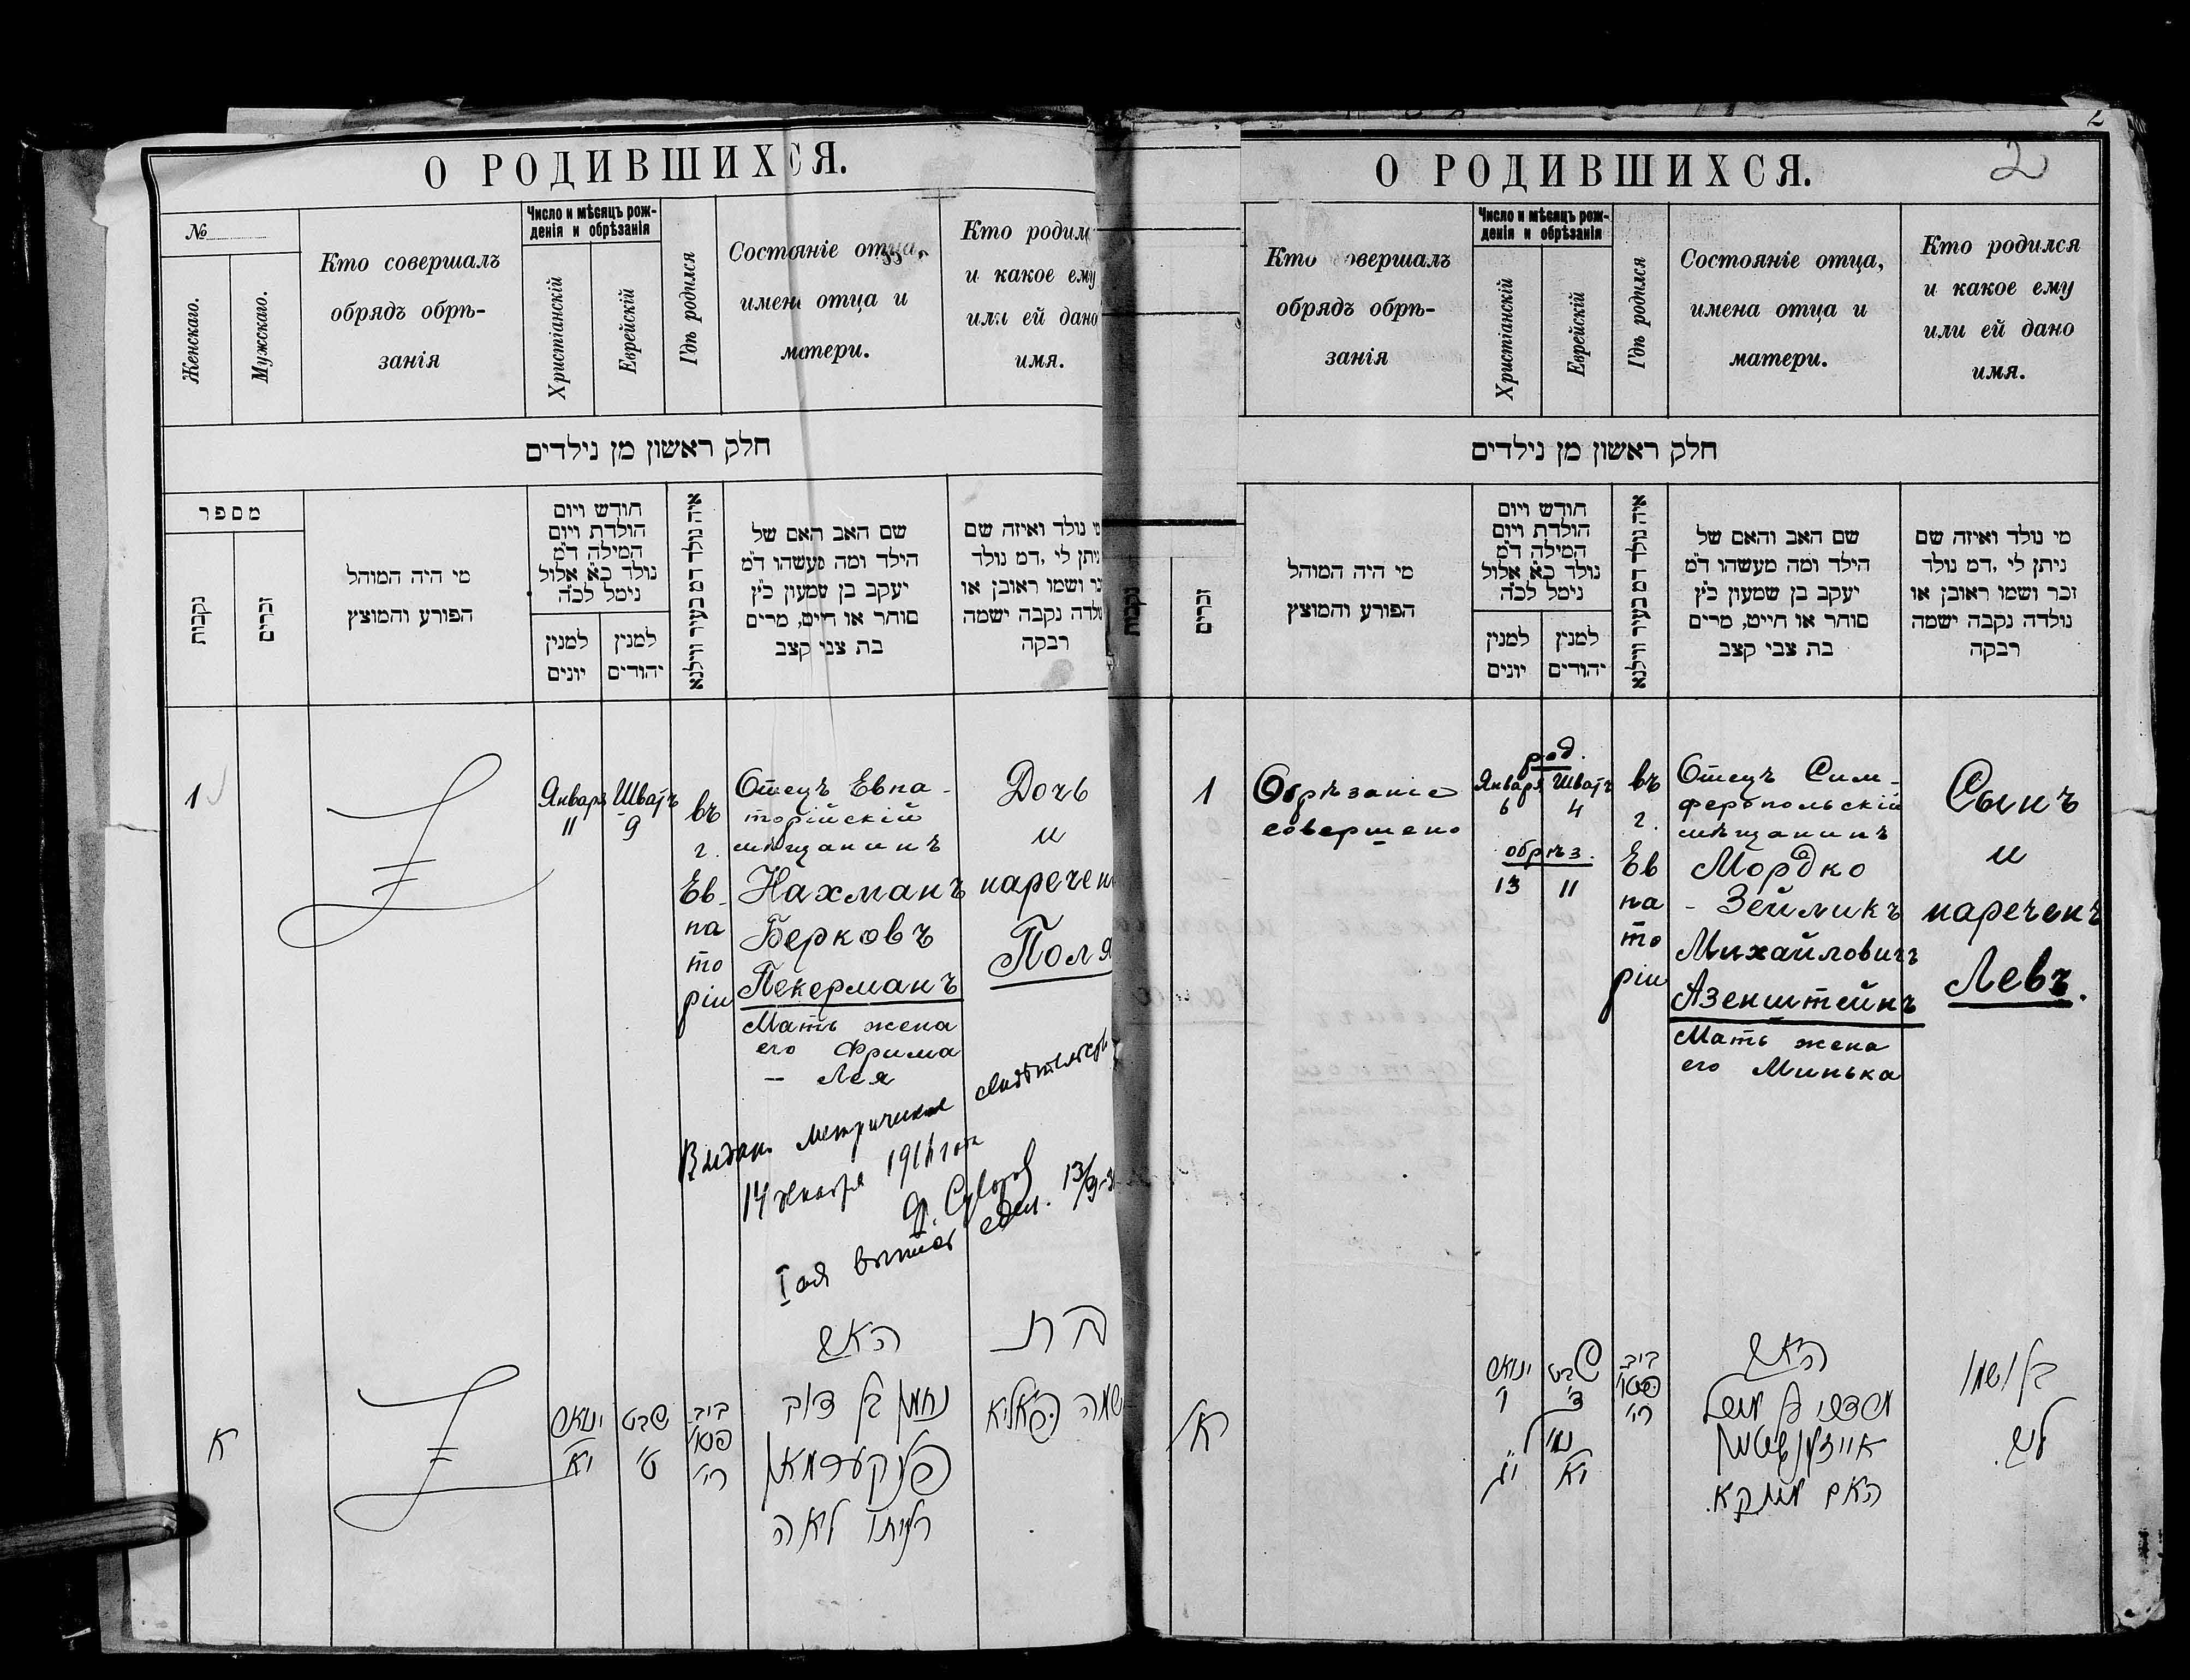 О РОДИВШИХСЯ.
№
Женскаго.
Мужскаго.
Кто совершалъ
обрядъ обрѣ-
занія
Число и мѣсяцъ рож-
денія и обрѣзанія
Христіанскій
Еврейскій
Гдѣ родился
Состояніе отца,
имена отца и
матери.
Кто родил
и какое ему
или ей дано
имя.
חלק ראשון מן נילדים
מספר
נקבות
זכרים
מי היה המוהל
הפורע והמוצץ
חודש ויום
הולדת ויום
המילה ד״מ
נולד כ״א אלול
נימל לכ״ה
למנין
יונים
למנין
יהודים
איה נולד דמ בעיר ווילנא
שם האב האם של
הילד ומה מעשהו ד״מ
יעקב בן שמעון כ״ץ
סוחר או חייט, מרים
בת צבי קצב
מי נולד ואיזה שם
ניתן לי, דמ נולד
זכר ושמו ראובן או
נולדה נקבה ישמה
רבקה
1
Января
11
Шватъ
9
въ
г.
Ев-
па
то
ріи
Отецъ Евпа-
торійскій
мѣщанинъ
Нахманъ
Берковъ
Пекерманъ
Мать жена
его Фрима
- Лея
Дочь
и
наречен
Поля
Выдан. метрическое свидѣтельств
14 января 1914 года
I ая
13/
א
ינואר
י״א
שבט
ט׳
האב
נחמן בן דוב
פעקערמאן
ליאה
בת
שמה
О РОДИВШИХСЯ.
2
2
Кто совершалъ
обрядъ обрѣ-
занія
Число и мѣсяцъ рож-
денія и обрѣзанія
Христіанскій
Еврейскій
Гдѣ родился
Состояніе отца,
имена отца и
матери.
Кто родился
и какое ему
или ей дано
имя.
חלק ראשון מן נילדים
נקבות
זכרים
מי היה המוהל
הפורע והמוצץ
חודש ויום
הולדת ויום
המילה ד״מ
נולד כ״א אלול
נימל לכ״ה
למנין
יונים
למנין
יהודים
איה נולד דמ בעיר ווילנא
שם האב והאם של
הילד ומה מעשהו ד״מ
יעקב בן שמעון כ״ץ
סוחר או חייט, מרים
בת צבי קצב
מי נולד ואיזה שם
ניתן לי, דמ נולד
זכר ושמו ראובן או
נולדה נקבה ישמה
רבקה
1
Обрѣзаніе
совершено
род.
Января
6
Шватъ
4
обрѣз.
13
11
въ
г.
Ев
па
то
ріи
Отецъ Сим-
феропольскій
мѣщанинъ
Мордко
- Зейликъ
Михайловичъ
Азенштейнъ
Мать жена
его Минька
Сынъ
и
нареченъ
Левъ.
א
ינואר
ו׳
שבט
ד׳
נימול
י״ג
י״א
האב
אייזענשטיין
האם מינקא.
בן ושמו
ליב.